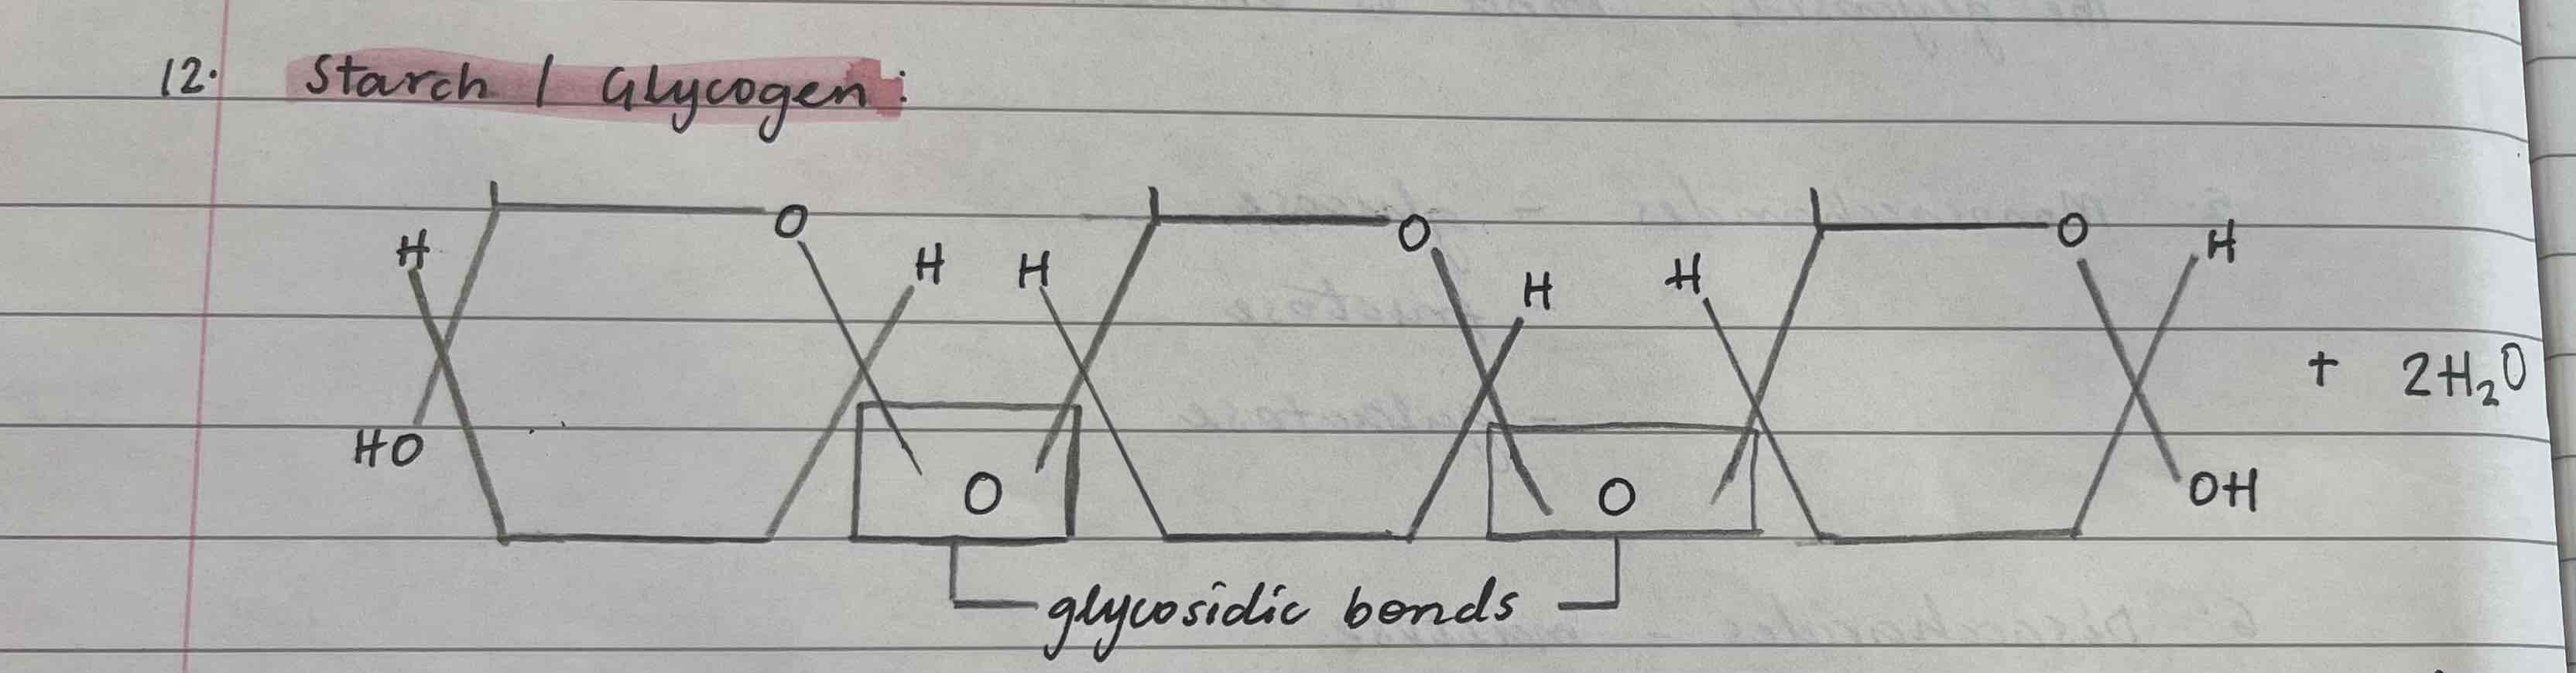 12. Starch / Glycogen:
O O O
H H H H H H
HO O O OH + 2H₂O
glycosidic bonds